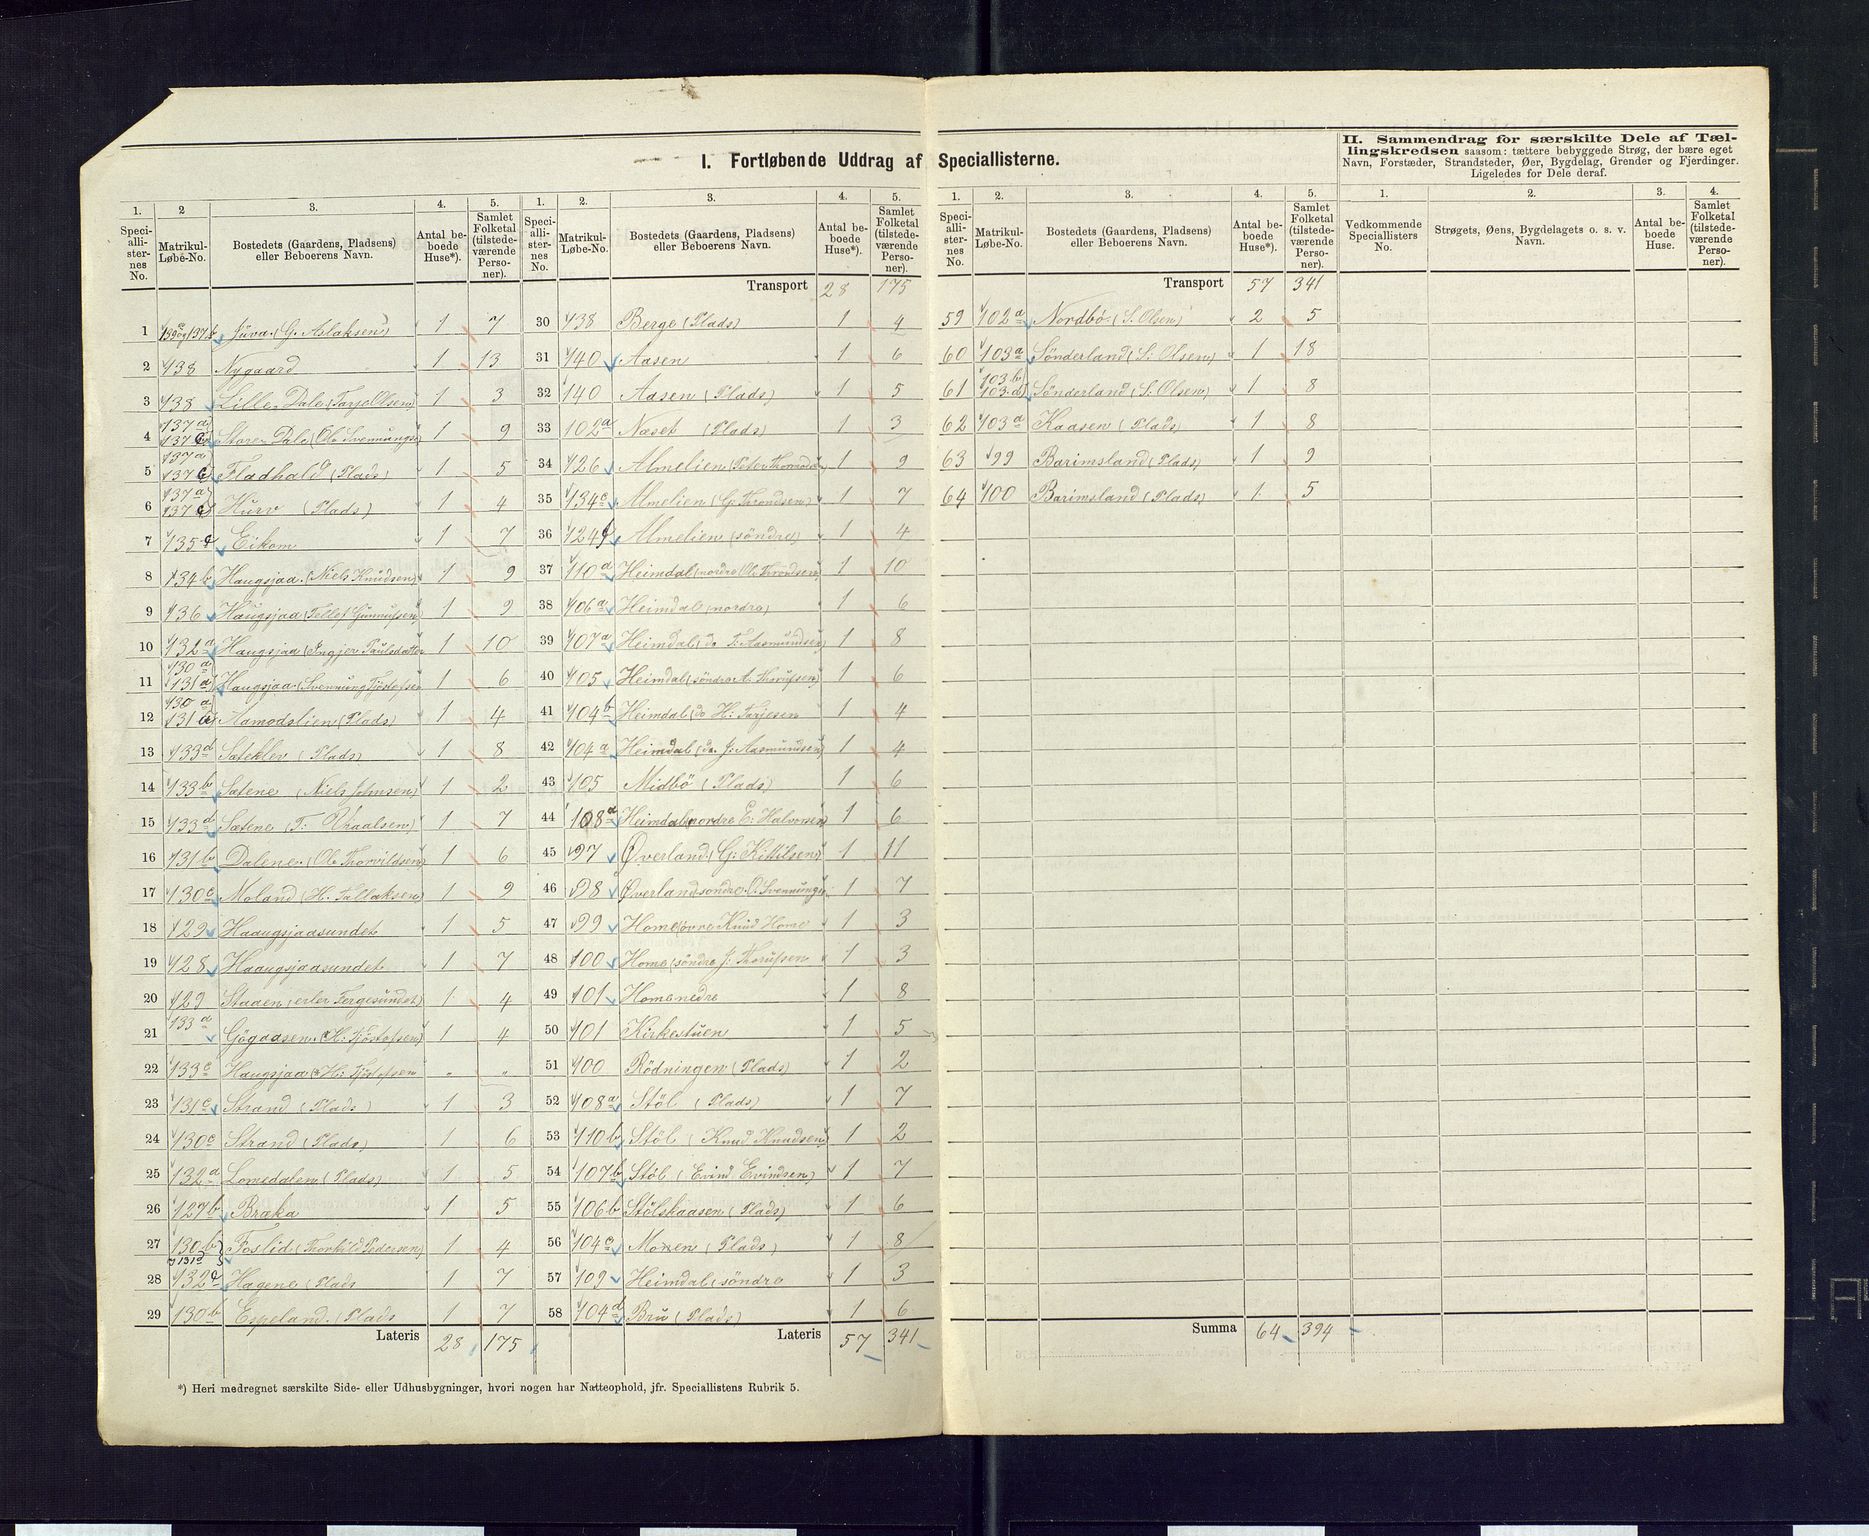 I. Fortløbende Uddrag af Speciallisterne.
1. Speciallisternes No. 2 Matrikul-Løbe-No. 3. Bostedets (Gaardens, Pladsens) eller Beboerens Navn. 4. Antal beboede Huse*). 5. Samlet Folketal (tilstedeværende Personer).
1 Juva (G. Aslaksen) 1 7
2 138 Nygaard 1 13
3 138 Lille Dale (Tarje Olsen) 1 3
4 137a Store Dale 1 9
5 137a Fladhald (Plads) 1 5
6 137a Hurv (Plads) 1 4
7 135 Eikom 1 7
8 134b Haugsjaa (Niels Knudsen) 1 9
9 136 Haugsjaa (Tellef Gunnufsen) 1 9
10 132a Haugsjaa (Ingjer Paulsdatter 1 10
11 130a 131a Haugsjaa (Svennung Tjöstofsen 1 6
12 130a 131a Aamodslien (Plads) 1 4
13 133d Sateklev (Plads) 1 8
14 133b Sætene (Niels Johnsen) 1 2
15 133d Sætene (T: Vraalsen) 1 7
16 131b Dalene (Ol: Thorvildsen) 1 6
17 130c Moland (H. Tallaksen) 1 9
18 129 Haaugsjaasundet 1 5
19 128 Haaugsjaasundet 1 7
20 129 Staaen eller Fergesundet) 1 4
21 133a Gögaasen (H: Tjöstofsen) 1 4
22 133c Haugsjaa (H: Tjöstofsen " "
23 131c Strand (Plads) 1 3
24 130c Strand (Plads) 1 6
25 132a Lomedalen (Plads) 1 5
26 127b Bræka 1 5
27 130b 131c Foslid (Thorkild Pedersen) 1 4
28 132 Hagene (Plads 1 7
29 130b Espeland (Plads 1 7
Lateris 28 175
1. Speciallisternes No. 2. Matrikul-Løbe-No. 3. Bostedets (Gaardens, Pladsens) eller Beboerens Navn. 4. Antal beboede Huse*). 5. Samlet Folketal (tilstedeværende Personer).
Transport 28 175
30 138 Berge (Plads) 1 4
31 140 Aasen 1 6
32 140 Aasen (Plads) 1 5
33 102a Næset (Plads) 1 3
34 126 Almelien (Peter Thomesen) 1 9
35 134c Almelien (G: Throndsen) 1 7
36 124 Almelien (söndre) 1 4
37 110a Heimdal (nordre Ol: Throndsen) 1 10
38 106a Heimdal (nordre) 1 6
39 107a Heimdal (do T: Aasmundsen) 1 8
40 105 Heimdal (söndre A. Thorufsen) 1 6
41 104b Heimdal (do H: Tarjesen 1 4
42 104a Heimdal (do. J: Aasmundsen) 1 4
43 105 Midbö (Plads) 1 6
44 108a Heimdal (nordre E: Halvorsen) 1 6
45 97 Øverland (G: Kittilsen) 1 11
46 98 Øverland söndre O: Svennungs 1 7
47 99 Home (övre Knud Home 1 3
48 100 Home (söndre J: Thorufsen 1 3
49 101 Home nedre 1 8
50 101 Kirkestuen 1 5
51 100 Rödningen (Plads) 1 2
52 108a Stöl (Plads) 1 7
53 110b Stöl (Knud Knudsen) 1 2
54 107b Stöl (Evind Evindsen) 1 7
55 106b Stölskaasen (Plads) 1 6
56 104c Monen (Plads) 1 8
57 109 Heimdal (söndre 1 3
58 104d Bru (Plads) 1 6
Lateris 57 341
1. Speciallisternes No. 2. Matrikul-Løbe-No. 3. Bostedets (Gaardens, Pladsens) eller Beboerens Navn. 4. Antal beboede Huse*). 5. Samlet Folketal (tilstedeværende Personer).
Transport 57 341
59 102a Nordbö (S. Olsen) 2 5
60 103a Sönderland (S: Olsen) 1 18
61 103b 103d Sönderland (S. Olsen) 1 8
62 103a Kaasen (Plads) 1 8
63 99 Barimsland (Plads) 1 9
64 100 Barimsland (Plads) 1 5
Summa 64 394
II. Sammendrag for særskilte Dele af Tællingskredsen saasom: tættere bebyggede Strøg, der bære eget
Navn, Forstæder, Strandsteder, Øer, Bygdelag, Grender og Fjerdinger.
Ligeledes for Dele deraf.
1. Vedkommende Speciallisters No. 2. Strøgets, Øens, Bygdelagets o. s. v. Navn. 3. Antal beboede Huse. 4. Samlet Folketal (tilstedeværende Personer).
*) Heri medregnet særskilte Side- eller Udhusbygninger, hvori nogen har Natteophold, jfr. Speciallistens Rubrik 5.